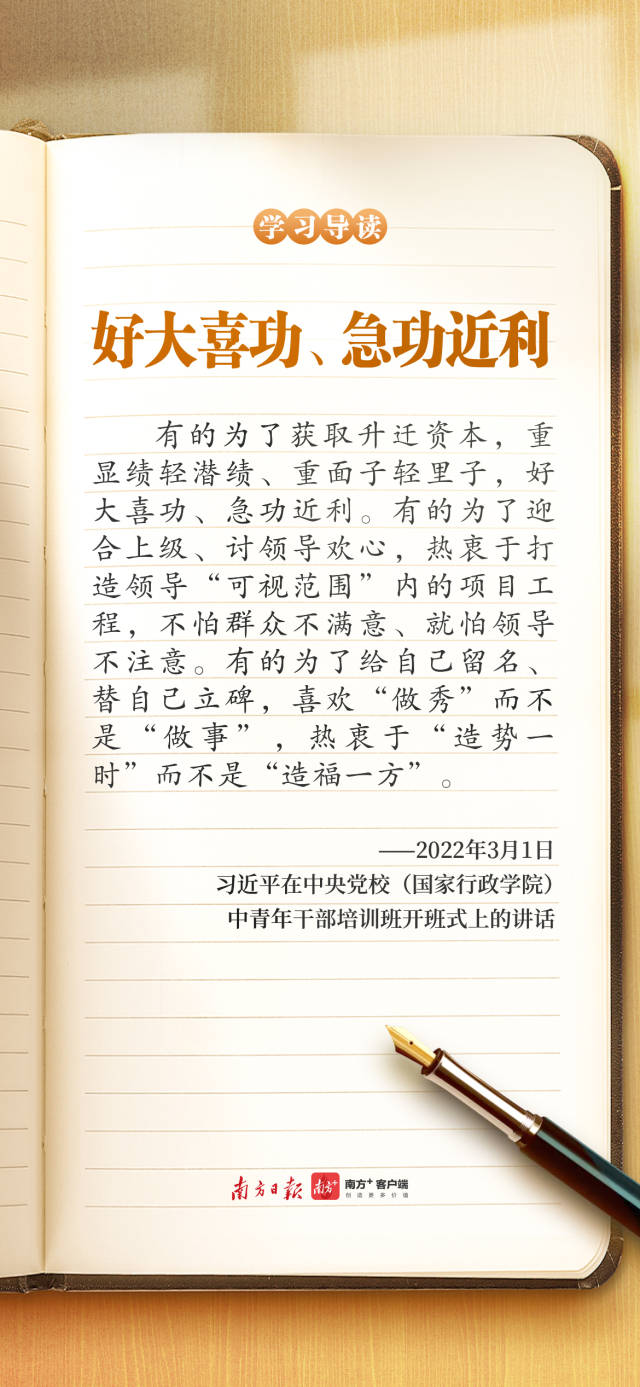 学习导读
好大喜功、急功近利
有的为了获取升迁资本，重
显绩轻潜绩、重面子轻里子，好
大喜功、急功近利。有的为了迎
合上级、讨领导欢心，热衷于打
造领导“可视范围”内的项目工
程，不怕群众不满意、就怕领导
不注意。有的为了给自己留名、
替自己立碑，喜欢“做秀”而不
是“做事”，热衷于“造势一
时”而不是“造福一方”。
——2022年3月1日
习近平在中央党校（国家行政学院）
中青年干部培训班开班式上的讲话
南方日报 南方+ 南方+ 客户端
创造更多价值